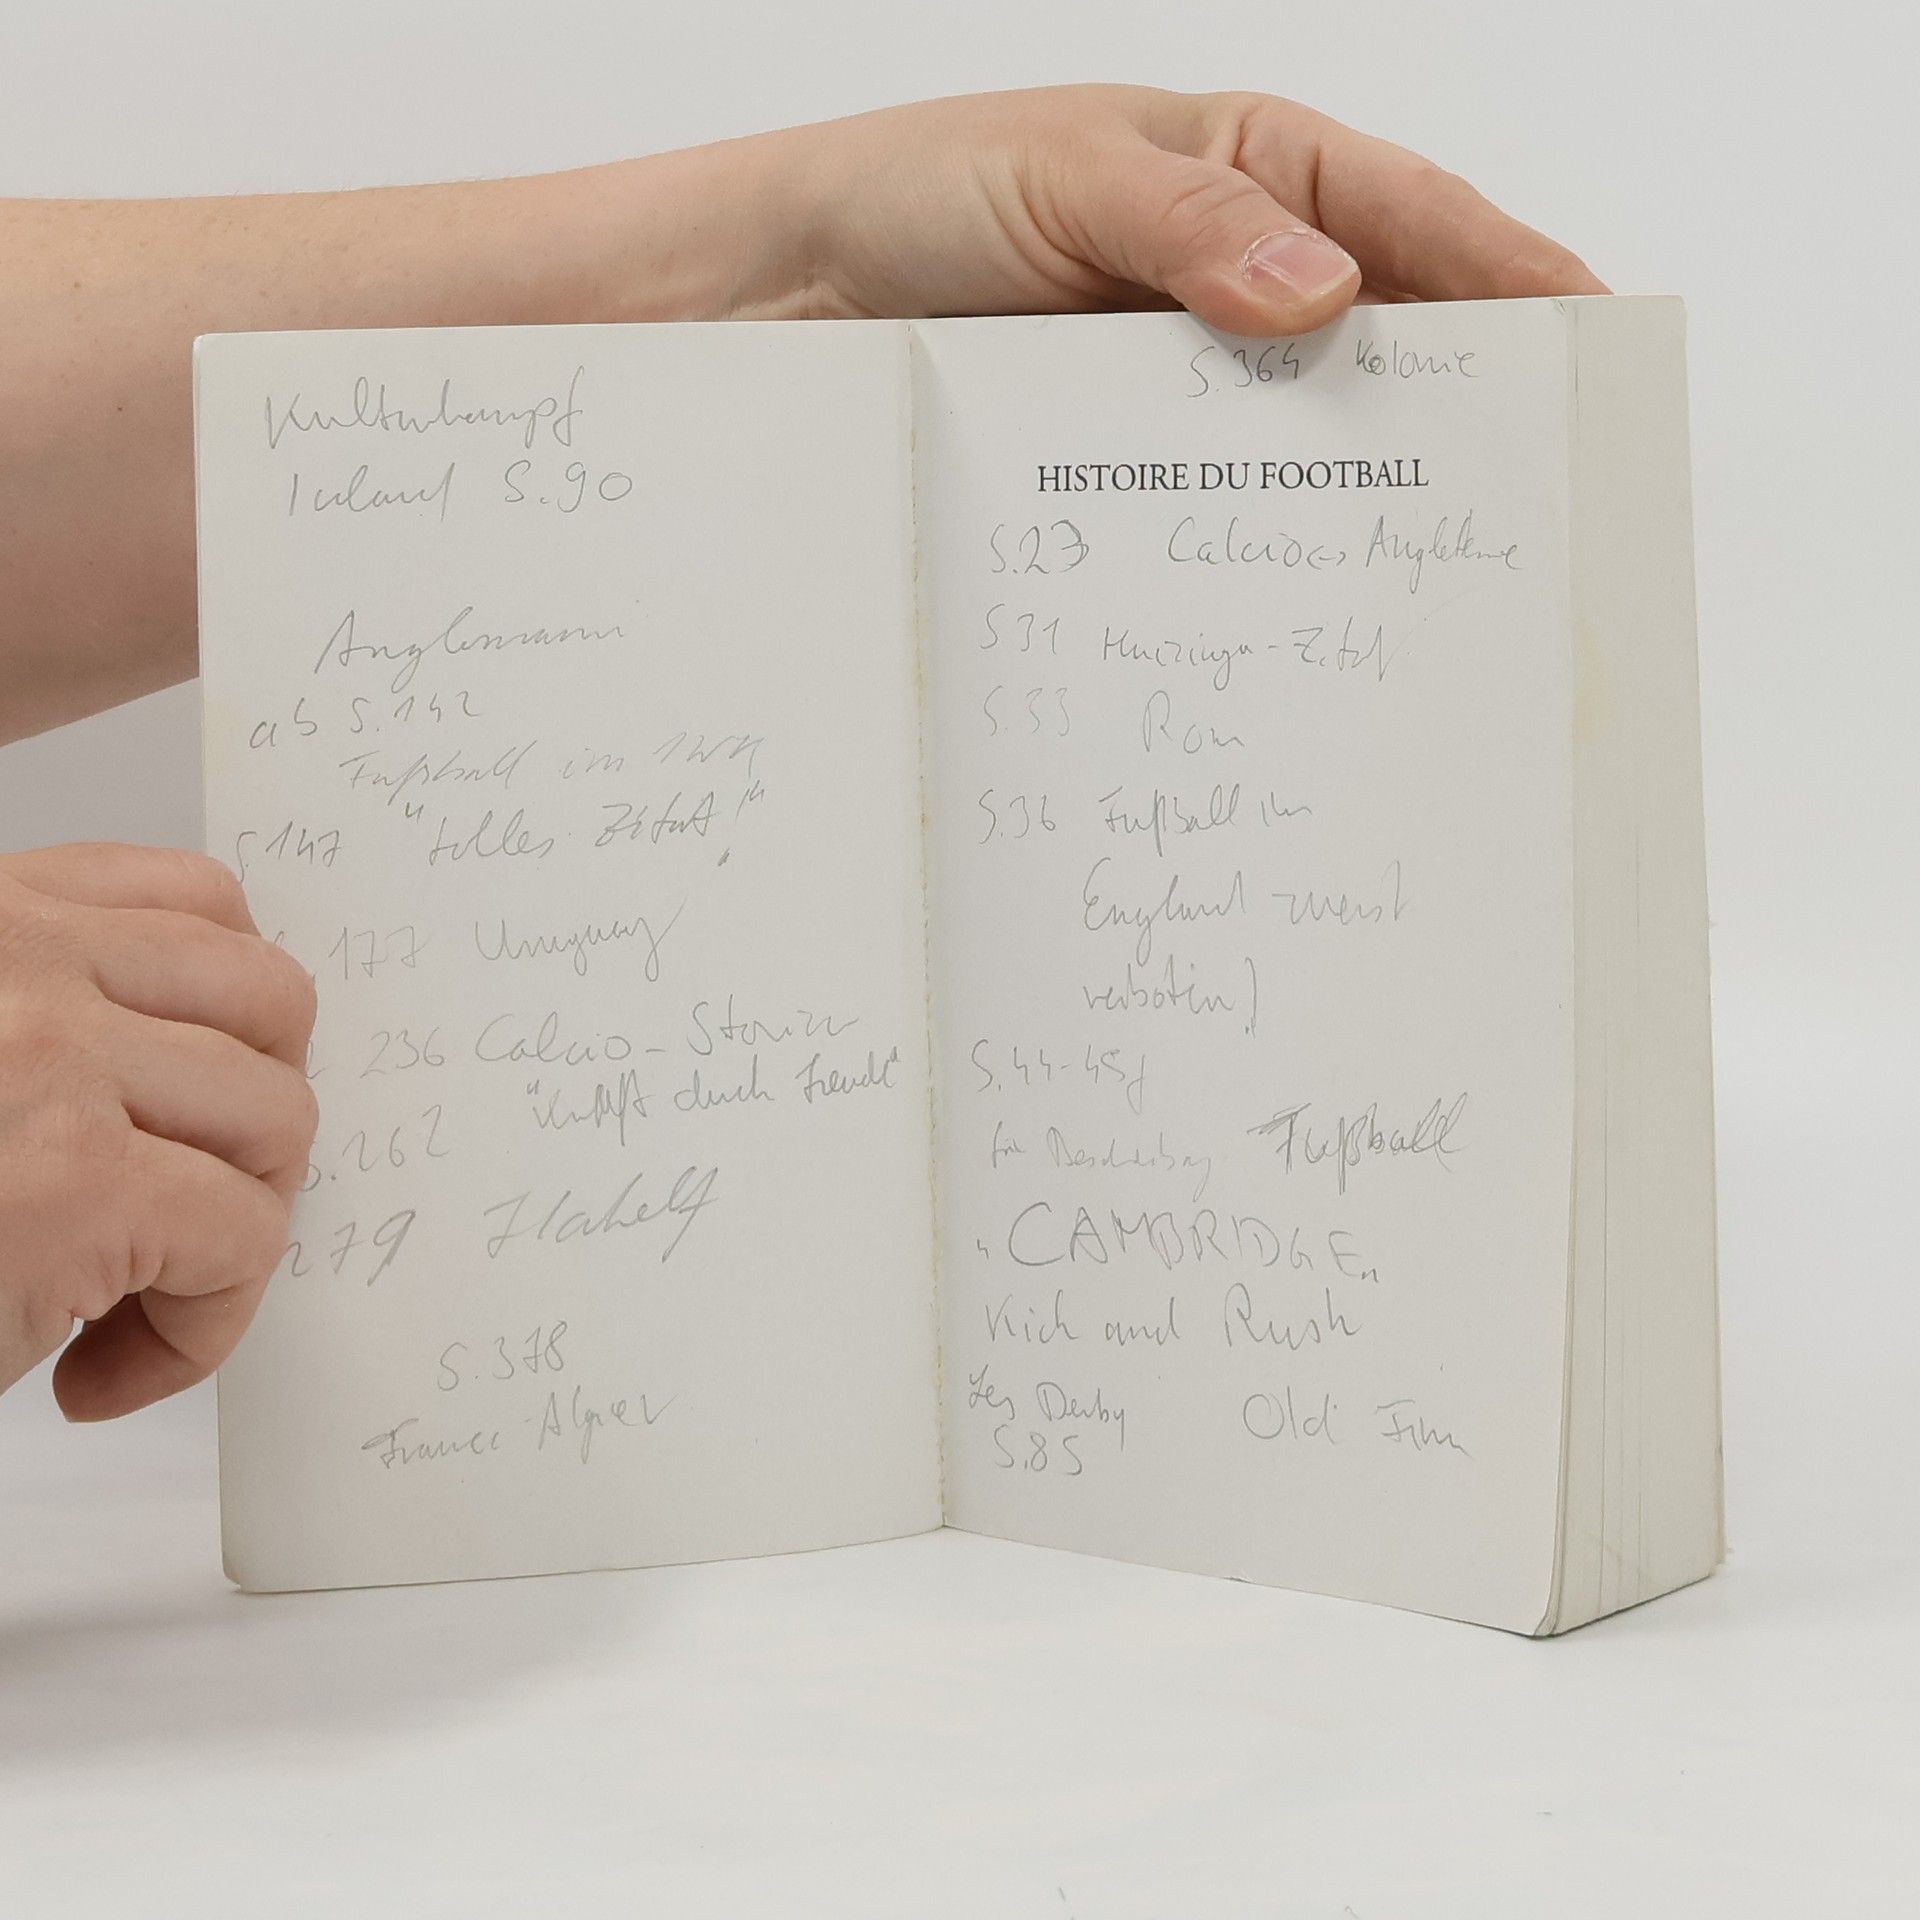 Kulturkampf
Irland S.90
ab S.142
Fußball im 1WK
S.147 "tolles Zitat!"
177 Uruguay
236 Calcio - Storia
"Kraft durch Freude"
S.262
279
S.378
France Algier
S.364 Kolonie
HISTOIRE DU FOOTBALL
S.23 Calcio <-> Angleterre
S 31 Huizinga-Zitat
S.33 Rom
S.36 Fußball in
England zuerst
verboten!
S.44-45f
für Beschreibung Fußball
"CAMBRIDGE"
Kick and Rush
Les Derby Old Firm
S.85